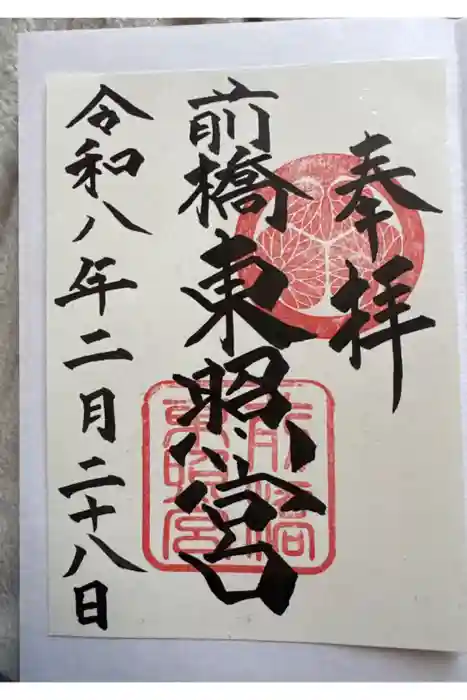 奉拝
前橋東照宮
前橋
東照宮
令和八年二月二十八日